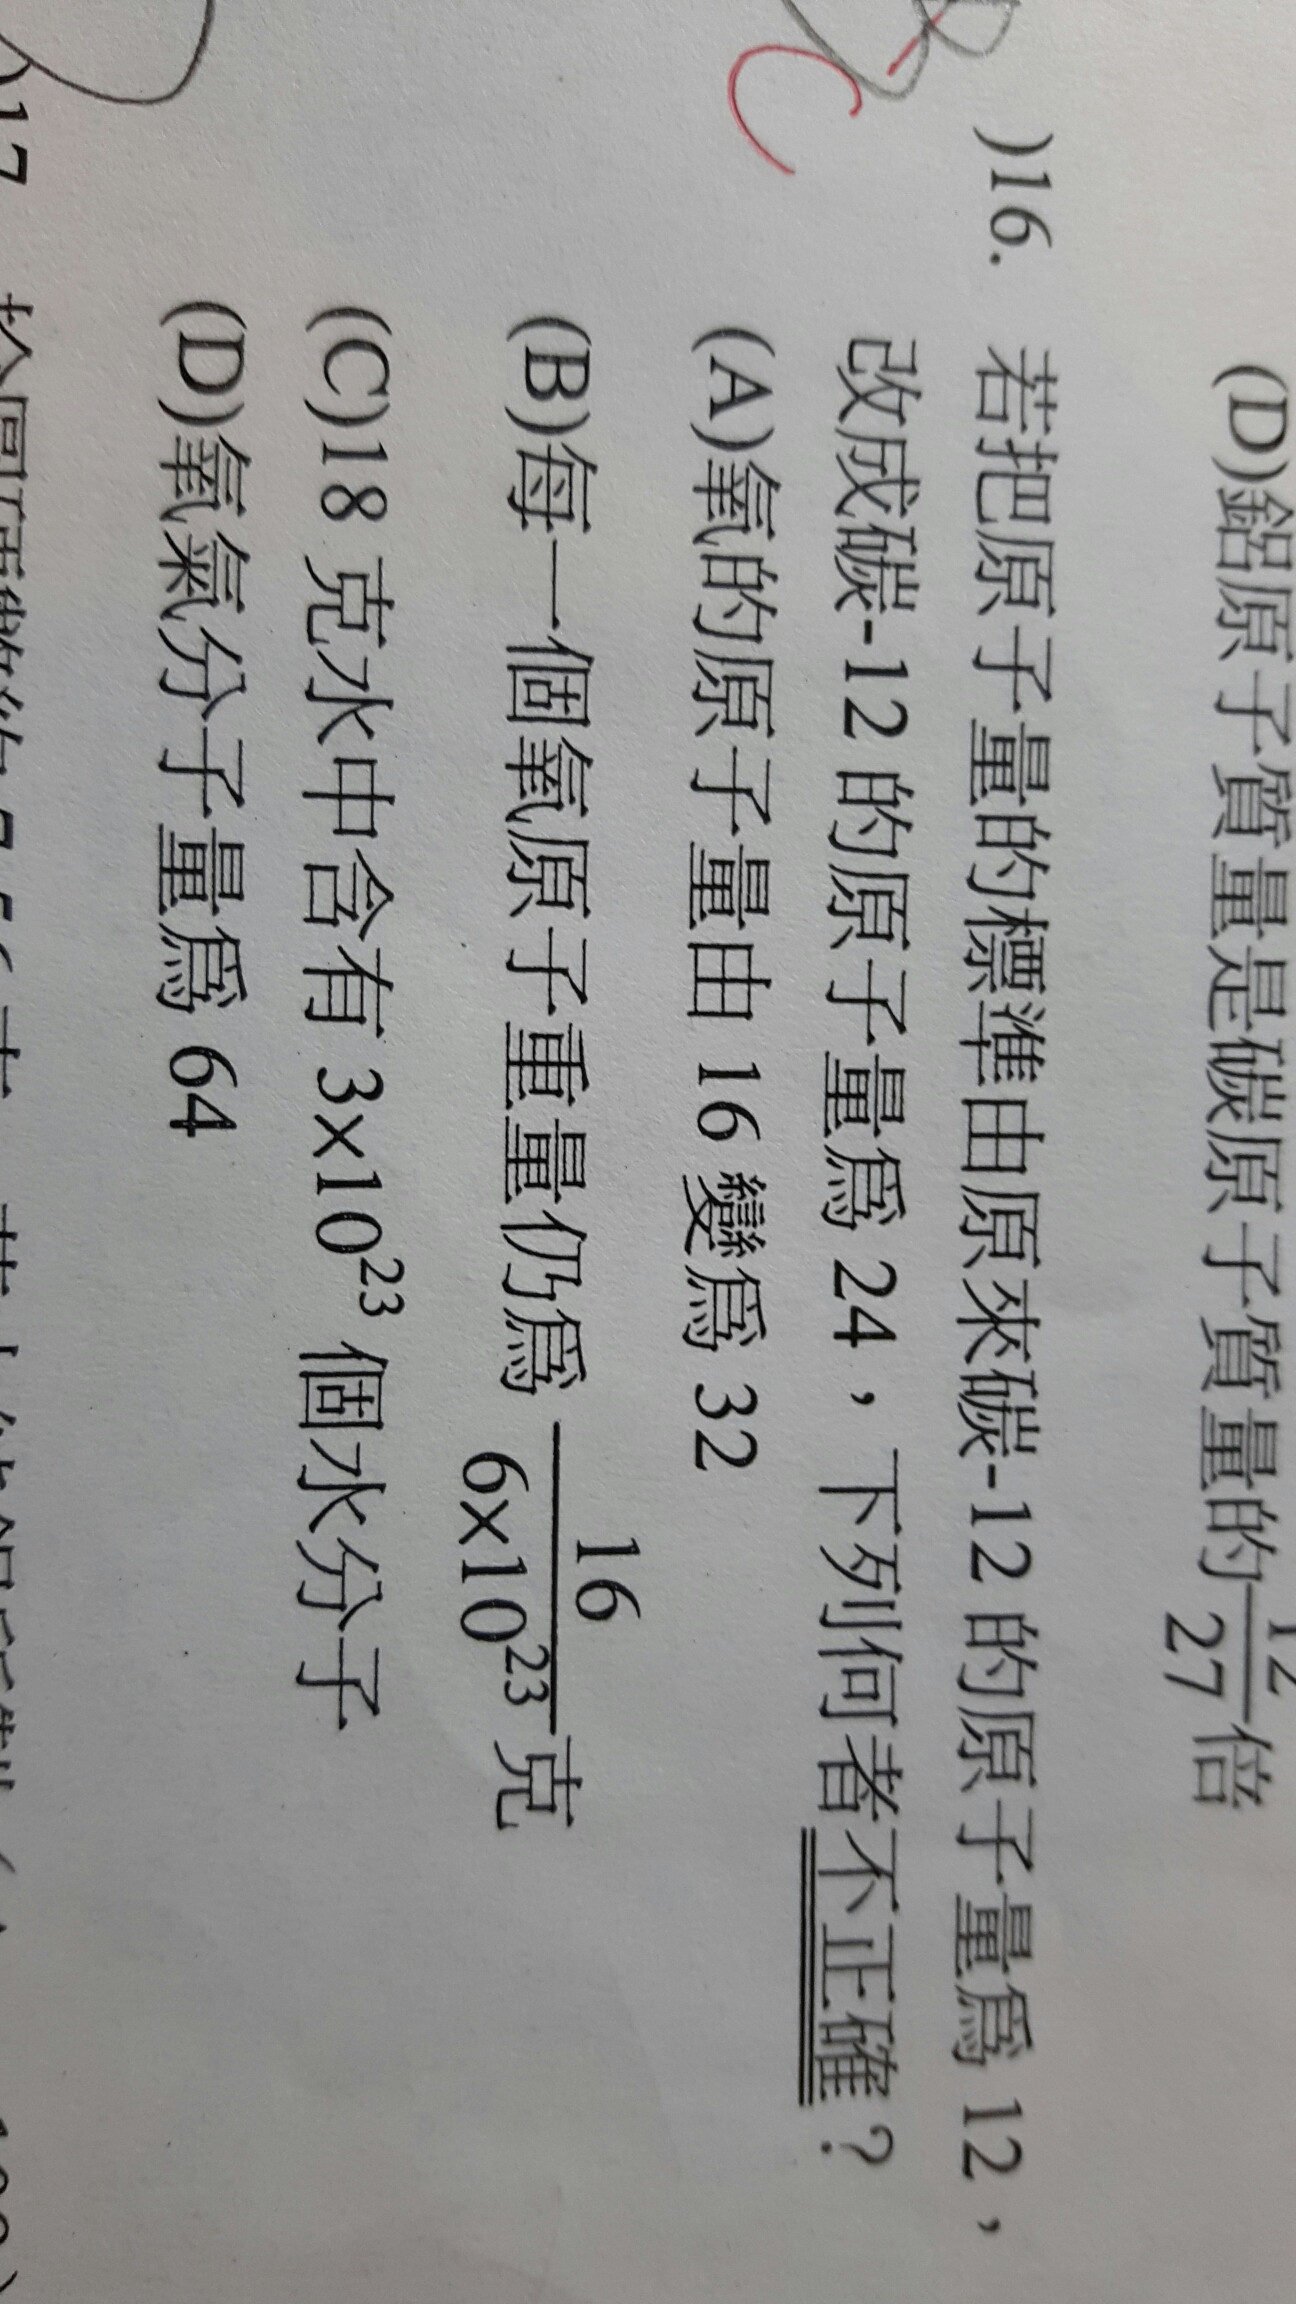 (D)鋁原子質量是碳原子質量的12/27倍
)16. 若把原子量的標準由原來碳-12 的原子量為 12，
改成碳-12 的原子量為 24，下列何者不正確？
C
(A)氧的原子量由 16 變為 32
(B)每一個氧原子重量仍為 16/6×10²³ 克
(C)18 克水中含有 3×10²³ 個水分子
(D)氧氣分子量為 64
)17.